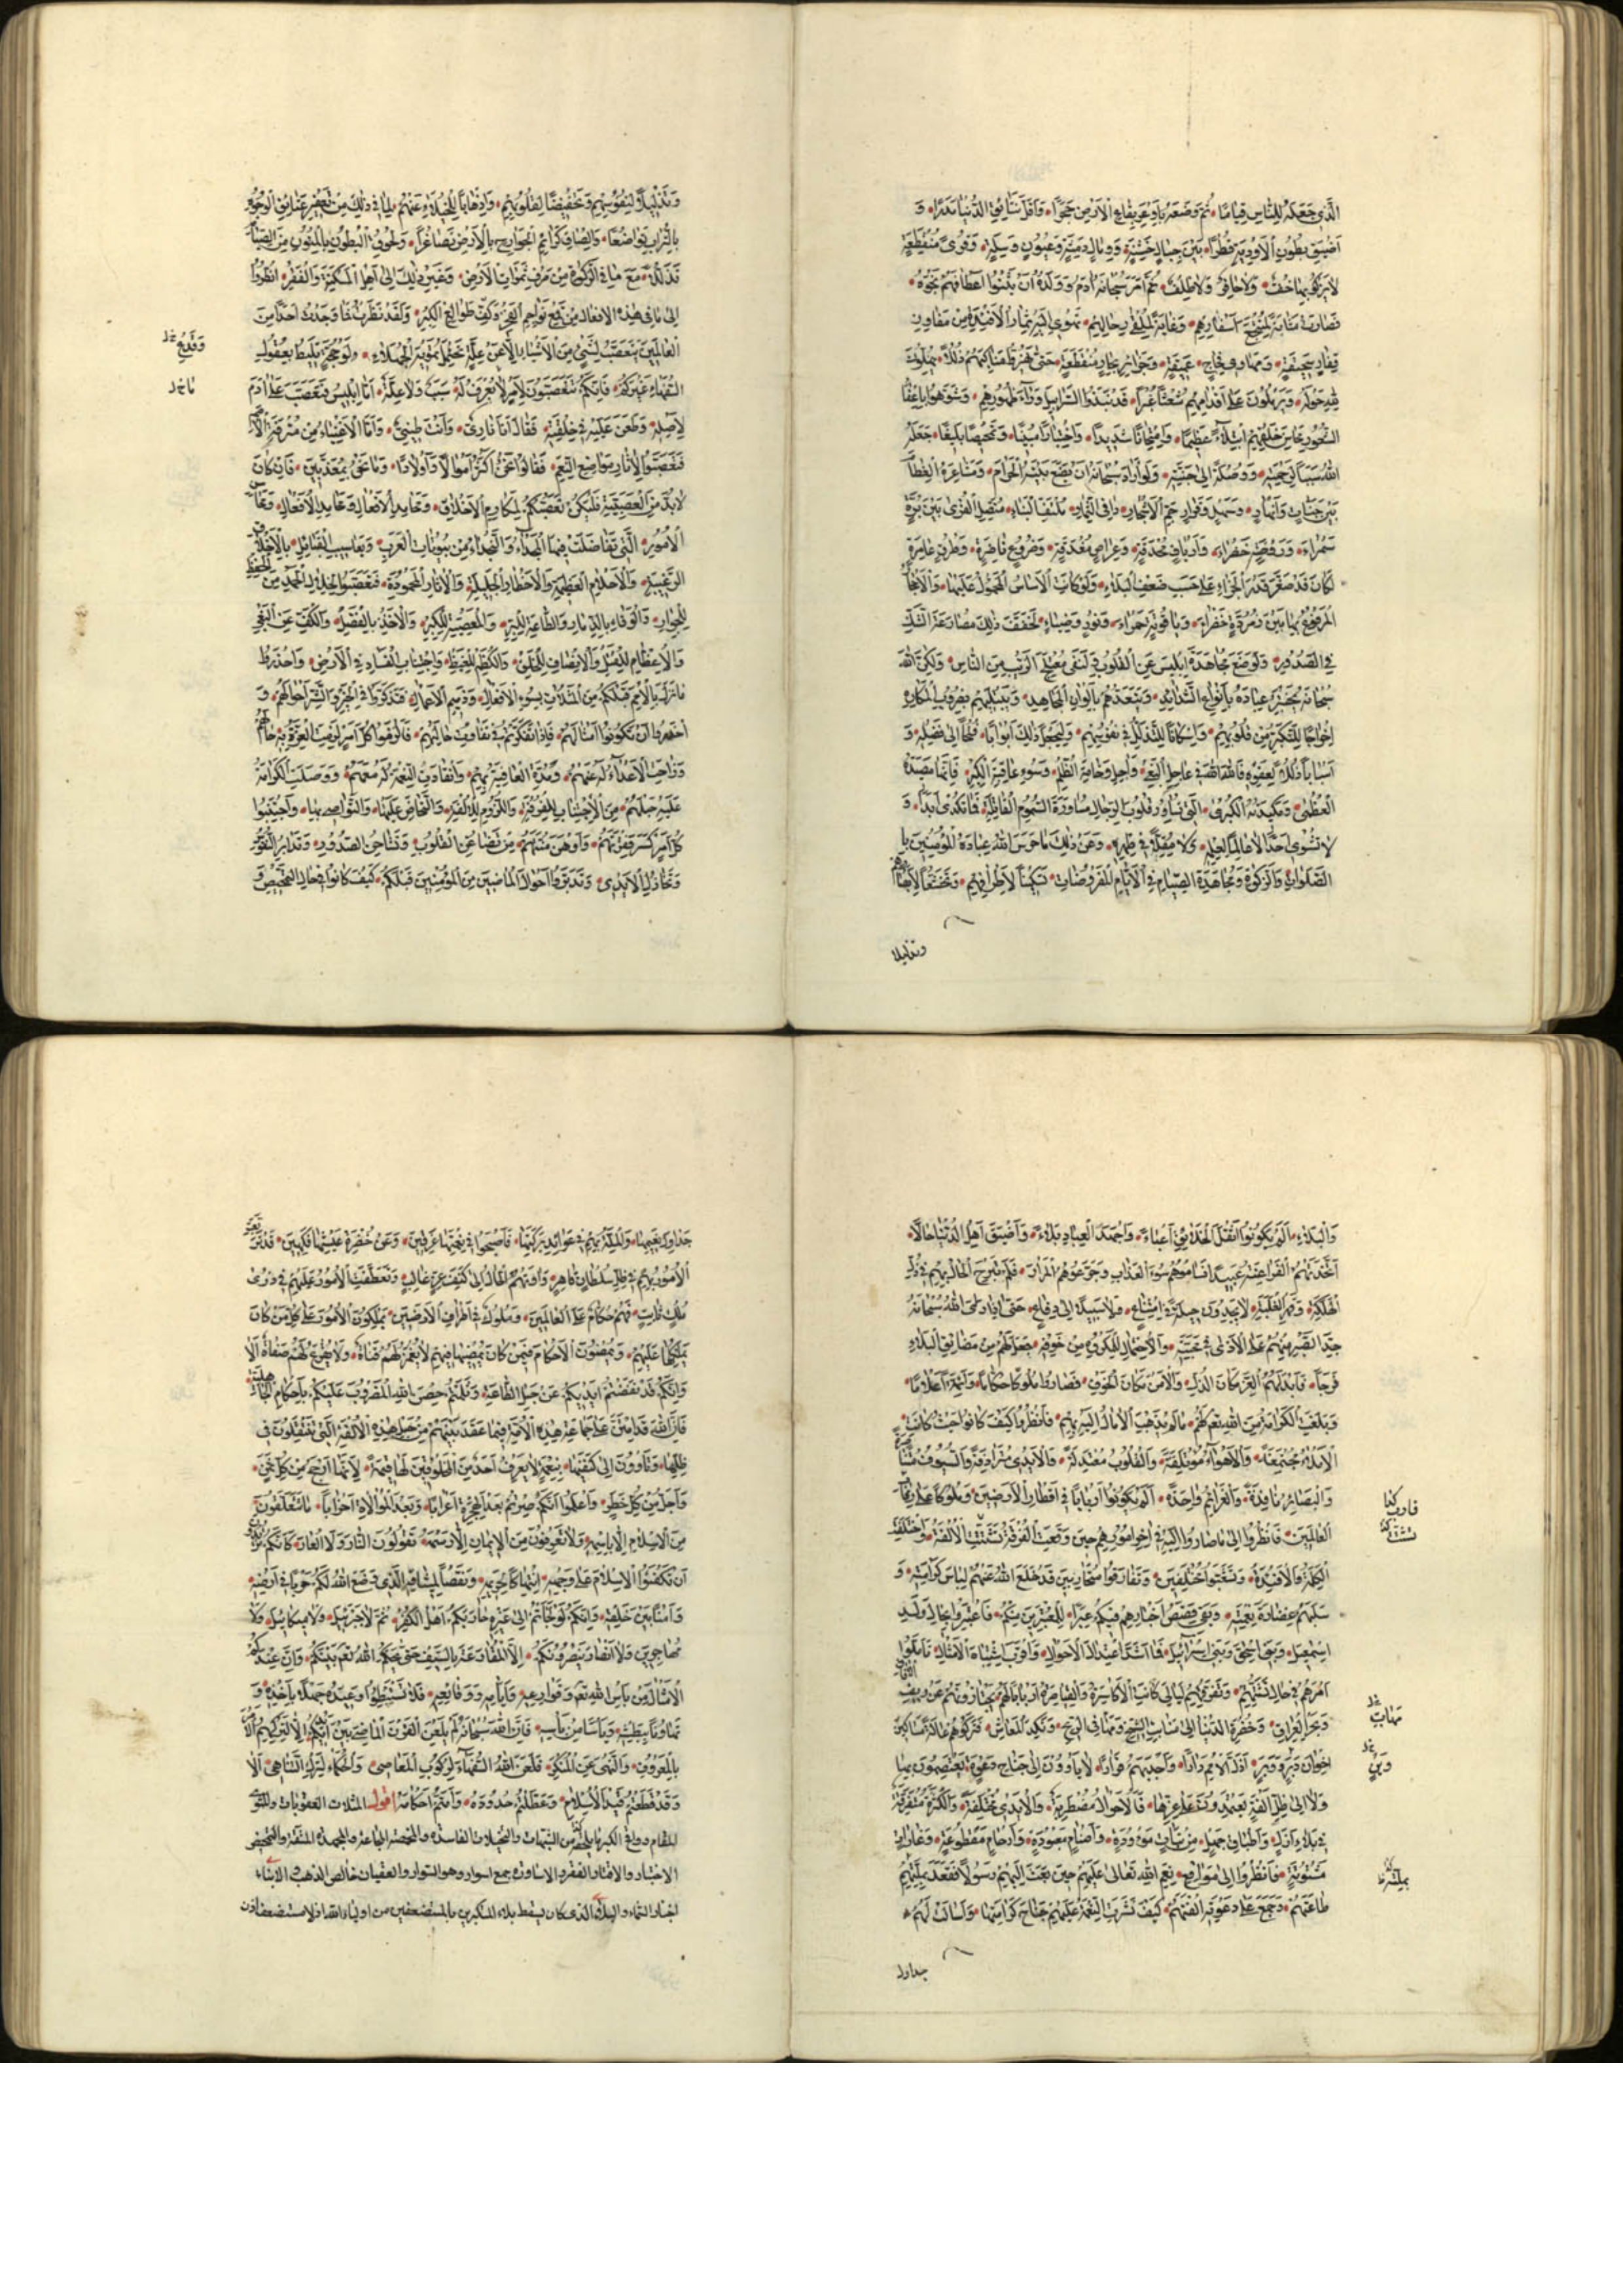 الَّذِي جَعَلَهُ لِلنَّاسِ قِيَامًا ثُمَّ وَضَعَهُ بِأَوْعَرِ بِقَاعِ الْأَرْضِ حَجَرًا وَأَقَلِّ نَتَائِقِ الدُّنْيَا مَدَرًا وَ
أَضْيَقِ بُطُونِ الْأَوْدِيَةِ قُطْرًا بَيْنَ جِبَالٍ خَشِنَةٍ وَرِمَالٍ دَمِثَةٍ وَعُيُونٍ وَشِلَةٍ وَقُرًى مُنْقَطِعَةٍ
لَا يَزْكُو بِهَا خُفٌّ وَلَا حَافِرٌ وَلَا ظِلْفٌ ثُمَّ أَمَرَ سُبْحَانَهُ آدَمَ وَوَلَدَهُ أَنْ يَثْنُوا أَعْطَافَهُمْ نَحْوَهُ
فَصَارَ مَثَابَةً لِمُنْتَجَعِ أَسْفَارِهِمْ وَغَايَةً لِمُلْقَى رِحَالِهِمْ تَهْوِي إِلَيْهِ ثِمَارُ الْأَفْئِدَةِ مِنْ مَفَاوِزِ
قِفَارٍ سَحِيقَةٍ وَمَهَاوِي فِجَاجٍ عَمِيقَةٍ وَجَزَائِرِ بِحَارٍ مُنْقَطِعَةٍ حَتَّى يَهُزُّوا مَنَاكِبَهُمْ ذُلُلًا يُهِلُّونَ
لِلَّهِ حَوْلَهُ وَيَرْمُلُونَ عَلَى أَقْدَامِهِمْ شُعْثًا غُبْرًا قَدْ نَبَذُوا السَّرَابِيلَ وَرَاءَ ظُهُورِهِمْ وَشَوَّهُوا بِإِعْفَاءِ
الشُّعُورِ مَحَاسِنَ خَلْقِهِمُ ابْتِلَاءً عَظِيمًا وَامْتِحَانًا شَدِيدًا وَاخْتِبَارًا مُبِينًا وَتَمْحِيصًا بَلِيغًا جَعَلَهُ
اللهُ سَبَبًا لِرَحْمَتِهِ وَوُصْلَةً إِلَى جَنَّتِهِ وَلَوْ أَرَادَ سُبْحَانَهُ أَنْ يَضَعَ بَيْتَهُ الْحَرَامَ وَمَشَاعِرَهُ الْعِظَامَ
بَيْنَ جَنَّاتٍ وَأَنْهَارٍ وَسَهْلٍ وَقَرَارٍ جَمَّ الْأَشْجَارِ دَانِيَ الثِّمَارِ مُلْتَفَّ الْبِنَاءِ مُتَّصِلَ الْقُرَى بَيْنَ بُرَّةٍ
سَمْرَاءَ وَرَوْضَةٍ خَضْرَاءَ وَأَرْيَافٍ مُحْدِقَةٍ وَعِرَاصٍ مُغْدِقَةٍ وَزُرُوعٍ نَاضِرَةٍ وَطُرُقٍ عَامِرَةٍ
لَكَانَ قَدْ صَغُرَ قَدْرُ الْجَزَاءِ عَلَى حَسَبِ ضَعْفِ الْبَلَاءِ وَلَوْ كَانَ الْأَسَاسُ الْمَحْمُولُ عَلَيْهَا وَالْأَحْجَارُ
الْمَرْفُوعُ بِهَا بَيْنَ زُمُرُّدَةٍ خَضْرَاءَ وَيَاقُوتَةٍ حَمْرَاءَ وَنُورٍ وَضِيَاءٍ لَخَفَّفَ ذَلِكَ مُصَارَعَةَ الشَّكِّ
فِي الصُّدُورِ وَلَوَضَعَ مُجَاهَدَةَ إِبْلِيسَ عَنِ الْقُلُوبِ وَلَنَفَى مُعْتَلَجَ الرَّيْبِ مِنَ النَّاسِ وَلَكِنَّ اللهَ
سُبْحَانَهُ يَخْتَبِرُ عِبَادَهُ بِأَنْوَاعِ الشَّدَائِدِ وَيَتَعَبَّدُهُمْ بِأَلْوَانِ الْمَجَاهِدِ وَيَبْتَلِيهِمْ بِضُرُوبِ الْمَكَارِهِ
إِخْرَاجًا لِلتَّكَبُّرِ مِنْ قُلُوبِهِمْ وَإِسْكَانًا لِلتَّذَلُّلِ فِي نُفُوسِهِمْ وَلِيَجْعَلَ ذَلِكَ أَبْوَابًا فُتُحًا إِلَى فَضْلِهِ وَ
أَسْبَابًا ذُلُلًا لِعَفْوِهِ فَاللهَ اللهَ فِي عَاجِلِ الْبَغْيِ وَآجِلِ وَخَامَةِ الظُّلْمِ وَسُوءِ عَاقِبَةِ الْكِبْرِ فَإِنَّهَا مَصْيَدَةُ إِبْلِيسَ
الْعُظْمَى وَمَكِيدَتُهُ الْكُبْرَى الَّتِي تُسَاوِرُ قُلُوبَ الرِّجَالِ مُسَاوَرَةَ السُّمُومِ الْقَاتِلَةِ فَمَا تُكْدِي أَبَدًا وَ
لَا تُشْوِي أَحَدًا لَا عَالِمًا لِعِلْمِهِ وَلَا مُقِلًّا فِي طِمْرِهِ وَعَنْ ذَلِكَ مَا حَرَسَ اللهُ عِبَادَهُ الْمُؤْمِنِينَ بِا
الصَّلَوَاتِ وَالزَّكَوَاتِ وَمُجَاهَدَةِ الصِّيَامِ فِي الْأَيَّامِ الْمَفْرُوضَاتِ تَسْكِينًا لِأَطْرَافِهِمْ وَتَخْشِيعًا لِأَبْصَارِهِمْ
وتذليلا
وَتَذْلِيلًا لِنُفُوسِهِمْ وَتَخْفِيضًا لِقُلُوبِهِمْ وَإِذْهَابًا لِلْخُيَلَاءِ عَنْهُمْ لِمَا فِي ذَلِكَ مِنْ تَعْفِيرِ عَتَائِقِ الْوُجُوهِ
بِالتُّرَابِ تَوَاضُعًا وَإِلْصَاقِ كَرَائِمِ الْجَوَارِحِ بِالْأَرْضِ تَصَاغُرًا وَلُحُوقِ الْبُطُونِ بِالْمُتُونِ مِنَ الصِّيَامِ
تَذَلُّلًا مَعَ مَا فِي الزَّكَوةِ مِنْ صَرْفِ ثَمَرَاتِ الْأَرْضِ وَغَيْرِ ذَلِكَ إِلَى أَهْلِ الْمَسْكَنَةِ وَالْفَقْرِ انْظُرُوا
إِلَى مَا فِي هَذِهِ الْأَفْعَالِ مِنْ قَمْعِ نَوَاجِمِ الْفَخْرِ وَكَفِّ طَوَالِعِ الْكِبْرِ وَلَقَدْ نَظَرْتُ فَمَا وَجَدْتُ أَحَدًا مِنَ
وَقَدْعِ خل
الْعَالَمِينَ يَتَعَصَّبُ لِشَيْءٍ مِنَ الْأَشْيَاءِ إِلَّا عَنْ عِلَّةٍ تَحْتَمِلُ تَمْوِيهَ الْجُهَلَاءِ أَوْ حُجَّةٍ تَلِيطُ بِعُقُولِ
السُّفَهَاءِ غَيْرَكُمْ فَإِنَّكُمْ تَتَعَصَّبُونَ لِأَمْرٍ لَا يُعْرَفُ لَهُ سَبَبٌ وَلَا عِلَّةٌ أَمَّا إِبْلِيسُ فَتَعَصَّبَ عَلَى آدَمَ
لِأَصْلِهِ وَطَعَنَ عَلَيْهِ فِي خِلْقَتِهِ فَقَالَ أَنَا نَارِيٌّ وَأَنْتَ طِينِيٌّ وَأَمَّا الْأَغْنِيَاءُ مِنْ مُتْرَفَةِ الْأُمَمِ
فَتَعَصَّبُوا لِآثَارِ مَوَاقِعِ النِّعَمِ فَقَالُوا نَحْنُ أَكْثَرُ أَمْوَالًا وَأَوْلَادًا وَمَا نَحْنُ بِمُعَذَّبِينَ فَإِنْ كَانَ
لَا بُدَّ مِنَ الْعَصَبِيَّةِ فَلْيَكُنْ تَعَصُّبُكُمْ لِمَكَارِمِ الْأَخْلَاقِ وَمَحَامِدِ الْأَفْعَالِ وَمَحَاسِنِ
الْأُمُورِ الَّتِي تَفَاضَلَتْ فِيهَا الْمُجَدَاءُ وَالنُّجَدَاءُ مِنْ بُيُوتَاتِ الْعَرَبِ وَيَعَاسِيبِ الْقَبَائِلِ بِالْأَخْلَاقِ
الرَّغِيبَةِ وَالْأَحْلَامِ الْعَظِيمَةِ وَالْأَخْطَارِ الْجَلِيلَةِ وَالْآثَارِ الْمَحْمُودَةِ فَتَعَصَّبُوا لِخِلَالِ الْحَمْدِ مِنَ الْحِفْظِ
لِلْجِوَارِ وَالْوَفَاءِ بِالذِّمَارِ وَالطَّاعَةِ لِلْبِرِّ وَالْمَعْصِيَةِ لِلْكِبْرِ وَالْأَخْذِ بِالْفَضْلِ وَالْكَفِّ عَنِ الْبَغْيِ
وَالْإِعْظَامِ لِلْقَتْلِ وَالْإِنْصَافِ لِلْخَلْقِ وَالْكَظْمِ لِلْغَيْظِ وَاجْتِنَابِ الْفَسَادِ فِي الْأَرْضِ وَاحْذَرُوا
مَا نَزَلَ بِالْأُمَمِ قَبْلَكُمْ مِنَ الْمَثُلَاتِ بِسُوءِ الْأَفْعَالِ وَذَمِيمِ الْأَعْمَالِ فَتَذَكَّرُوا فِي الْخَيْرِ وَالشَّرِّ أَحْوَالَهُمْ وَ
احْذَرُوا أَنْ تَكُونُوا أَمْثَالَهُمْ فَإِذَا تَفَكَّرْتُمْ فِي تَفَاوُتِ حَالَيْهِمْ فَالْزَمُوا كُلَّ أَمْرٍ لَزِمَتِ الْعِزَّةُ بِهِ حَالَهُمْ
وَزَاحَتِ الْأَعْدَاءُ لَهُ عَنْهُمْ وَمُدَّتِ الْعَافِيَةُ بِهِمْ وَانْقَادَتِ النِّعْمَةُ لَهُ مَعَهُمْ وَوَصَلَتِ الْكَرَامَةُ
عَلَيْهِ حَبْلَهُمْ مِنَ الِاجْتِنَابِ لِلْفُرْقَةِ وَاللُّزُومِ لِلْأُلْفَةِ وَالتَّحَاضِّ عَلَيْهَا وَالتَّوَاصِي بِهَا وَاجْتَنِبُوا
كُلَّ أَمْرٍ كَسَرَ فِقْرَتَهُمْ وَأَوْهَنَ مُنَّتَهُمْ مِنْ تَضَاغُنِ الْقُلُوبِ وَتَشَاحُنِ الصُّدُورِ وَتَدَابُرِ النُّفُوسِ
وَتَخَاذُلِ الْأَيْدِي وَتَدَبَّرُوا أَحْوَالَ الْمَاضِينَ مِنَ الْمُؤْمِنِينَ قَبْلَكُمْ كَيْفَ كَانُوا فِي حَالِ التَّمْحِيصِ وَ
وَالْبَلَاءِ أَلَمْ يَكُونُوا أَثْقَلَ الْخَلَائِقِ أَعْبَاءً وَأَجْهَدَ الْعِبَادِ بَلَاءً وَأَضْيَقَ أَهْلِ الدُّنْيَا حَالًا
اتَّخَذَتْهُمُ الْفَرَاعِنَةُ عَبِيدًا فَسَامُوهُمْ سُوءَ الْعَذَابِ وَجَرَّعُوهُمُ الْمُرَارَ فَلَمْ تَبْرَحِ الْحَالُ بِهِمْ فِي ذُلِّ
الْهَلَكَةِ وَقَهْرِ الْغَلَبَةِ لَا يَجِدُونَ حِيلَةً فِي امْتِنَاعٍ وَلَا سَبِيلًا إِلَى دِفَاعٍ حَتَّى إِذَا رَأَى اللهُ سُبْحَانَهُ
جِدَّ الصَّبْرِ مِنْهُمْ عَلَى الْأَذَى فِي مَحَبَّتِهِ وَالِاحْتِمَالَ لِلْمَكْرُوهِ مِنْ خَوْفِهِ جَعَلَ لَهُمْ مِنْ مَضَايِقِ الْبَلَاءِ
فَرَجًا فَأَبْدَلَهُمُ الْعِزَّ مَكَانَ الذُّلِّ وَالْأَمْنَ مَكَانَ الْخَوْفِ فَصَارُوا مُلُوكًا حُكَّامًا وَأَئِمَّةً أَعْلَامًا
وَبَلَغَتِ الْكَرَامَةُ مِنَ اللهِ لَهُمْ مَا لَمْ تَذْهَبِ الْآمَالُ إِلَيْهِ بِهِمْ فَانْظُرُوا كَيْفَ كَانُوا حَيْثُ كَانَتِ
الْأَمْلَاءُ مُجْتَمِعَةً وَالْأَهْوَاءُ مُؤْتَلِفَةً وَالْقُلُوبُ مُعْتَدِلَةً وَالْأَيْدِي مُتَرَادِفَةً وَالسُّيُوفُ مُتَنَاصِرَةً
وَالْبَصَائِرُ نَافِذَةً وَالْعَزَائِمُ وَاحِدَةً أَلَمْ يَكُونُوا أَرْبَابًا فِي أَقْطَارِ الْأَرَضِينَ وَمُلُوكًا عَلَى رِقَابِ
الْعَالَمِينَ فَانْظُرُوا إِلَى مَا صَارُوا إِلَيْهِ فِي آخِرِ أُمُورِهِمْ حِينَ وَقَعَتِ الْفُرْقَةُ وَتَشَتَّتَتِ الْأُلْفَةُ وَاخْتَلَفَتِ
الْكَلِمَةُ وَالْأَفْئِدَةُ وَتَشَعَّبُوا مُخْتَلِفِينَ وَتَفَرَّقُوا مُتَحَارِبِينَ قَدْ خَلَعَ اللهُ عَنْهُمْ لِبَاسَ كَرَامَتِهِ وَ
سَلَبَهُمْ غَضَارَةَ نِعْمَتِهِ وَبَقِيَ قَصَصُ أَخْبَارِهِمْ فِيكُمْ عِبَرًا لِلْمُعْتَبِرِينَ مِنْكُمْ فَاعْتَبِرُوا بِحَالِ وَلَدِ
إِسْمَعِيلَ وَبَنِي إِسْحَقَ وَبَنِي إِسْرَائِيلَ فَمَا أَشَدَّ اعْتِدَالَ الْأَحْوَالِ وَأَقْرَبَ اشْتِبَاهَ الْأَمْثَالِ تَأَمَّلُوا
أَمْرَهُمْ فِي حَالِ تَشَتُّتِهِمْ وَتَفَرُّقِهِمْ لَيَالِيَ كَانَتِ الْأَكَاسِرَةُ وَالْقَيَاصِرَةُ أَرْبَابًا لَهُمْ يَحْتَازُونَهُمْ عَنْ رِيفِ الْآفَاقِ
وَبَحْرِ الْعِرَاقِ وَخُضْرَةِ الدُّنْيَا إِلَى مَنَابِتِ الشِّيحِ وَمَهَافِي الرِّيحِ وَنَكَدِ الْمَعَاشِ فَتَرَكُوهُمْ عَالَةً مَسَاكِينَ
مَهَابِّ خل
إِخْوَانَ دَبَرٍ وَوَبَرٍ أَذَلَّ الْأُمَمِ دَارًا وَأَجْدَبَهُمْ قَرَارًا لَا يَأْوُونَ إِلَى جَنَاحِ دَعْوَةٍ يَعْتَصِمُونَ بِهَا
وَلَا إِلَى ظِلِّ أُلْفَةٍ يَعْتَمِدُونَ عَلَى عِزِّهَا فَالْأَحْوَالُ مُضْطَرِبَةٌ وَالْأَيْدِي مُخْتَلِفَةٌ وَالْكَثْرَةُ مُتَفَرِّقَةٌ
فِي بَلَاءِ أَزْلٍ وَأَطْبَاقِ جَهْلٍ مِنْ بَنَاتٍ مَوْءُودَةٍ وَأَصْنَامٍ مَعْبُودَةٍ وَأَرْحَامٍ مَقْطُوعَةٍ وَغَارَاتٍ
مَشْنُونَةٍ فَانْظُرُوا إِلَى مَوَاقِعِ نِعَمِ اللهِ تَعَالَى عَلَيْهِمْ حِينَ بَعَثَ إِلَيْهِمْ رَسُولًا فَعَقَدَ بِمِلَّتِهِ
طَاعَتَهُمْ وَجَمَعَ عَلَى دَعْوَتِهِ أُلْفَتَهُمْ كَيْفَ نَشَرَتِ النِّعْمَةُ عَلَيْهِمْ جَنَاحَ كَرَامَتِهَا وَأَسَالَتْ لَهُمْ
جداول
جَدَاوِلَ نَعِيمِهَا وَالْتَفَّتِ الْمِلَّةُ بِهِمْ فِي عَوَائِدِ بَرَكَتِهَا فَأَصْبَحُوا فِي نِعْمَتِهَا غَرِقِينَ وَعَنْ خُضْرَةِ عَيْشِهَا فَكِهِينَ قَدْ تَرَبَّعَتِ
الْأُمُورُ بِهِمْ فِي ظِلِّ سُلْطَانٍ قَاهِرٍ وَآوَتْهُمُ الْحَالُ إِلَى كَنَفِ عِزٍّ غَالِبٍ وَتَعَطَّفَتِ الْأُمُورُ عَلَيْهِمْ فِي ذُرَى
مُلْكٍ ثَابِتٍ فَهُمْ حُكَّامٌ عَلَى الْعَالَمِينَ وَمُلُوكٌ فِي أَطْرَافِ الْأَرَضِينَ يَمْلِكُونَ الْأُمُورَ عَلَى مَنْ كَانَ
يَمْلِكُهَا عَلَيْهِمْ وَيُمْضُونَ الْأَحْكَامَ فِيمَنْ كَانَ يُمْضِيهَا فِيهِمْ لَا تُغْمَزُ لَهُمْ قَنَاةٌ وَلَا تُقْرَعُ لَهُمْ صَفَاةٌ أَلَا
وَإِنَّكُمْ قَدْ نَفَضْتُمْ أَيْدِيَكُمْ عَنْ حَبْلِ الطَّاعَةِ وَثَلَمْتُمْ حِصْنَ اللهِ الْمَضْرُوبَ عَلَيْكُمْ بِأَحْكَامِ الْجَاهِلِيَّةِ
فَإِنَّ اللهَ قَدِ امْتَنَّ عَلَى جَمَاعَةِ هَذِهِ الْأُمَّةِ فِيمَا عَقَدَ بَيْنَهُمْ مِنْ حَبْلِ هَذِهِ الْأُلْفَةِ الَّتِي يَنْتَقِلُونَ فِي
ظِلِّهَا وَيَأْوُونَ إِلَى كَنَفِهَا بِنِعْمَةٍ لَا يَعْرِفُ أَحَدٌ مِنَ الْمَخْلُوقِينَ لَهَا قِيمَةً لِأَنَّهَا أَرْجَحُ مِنْ كُلِّ ثَمَنٍ
وَأَجَلُّ مِنْ كُلِّ خَطَرٍ وَاعْلَمُوا أَنَّكُمْ صِرْتُمْ بَعْدَ الْهِجْرَةِ أَعْرَابًا وَبَعْدَ الْمُوَالَاةِ أَحْزَابًا مَا تَتَعَلَّقُونَ
مِنَ الْإِسْلَامِ إِلَّا بِاسْمِهِ وَلَا تَعْرِفُونَ مِنَ الْإِيمَانِ إِلَّا رَسْمَهُ تَقُولُونَ النَّارَ وَلَا الْعَارَ كَأَنَّكُمْ تُرِيدُونَ
أَنْ تُكْفِئُوا الْإِسْلَامَ عَلَى وَجْهِهِ انْتِهَاكًا لِحَرِيمِهِ وَنَقْضًا لِمِيثَاقِهِ الَّذِي وَضَعَ اللهُ لَكُمْ حَرَمًا فِي أَرْضِهِ
وَأَمْنًا بَيْنَ خَلْقِهِ وَإِنَّكُمْ لَوْ لَجَأْتُمْ إِلَى غَيْرِهِ حَارَبَكُمْ أَهْلُ الْكُفْرِ ثُمَّ لَا جَبْرَئِيلَ وَلَا مِيكَائِيلَ وَلَا
مُهَاجِرِينَ وَلَا أَنْصَارَ يَنْصُرُونَكُمْ إِلَّا الْمُقَارَعَةَ بِالسَّيْفِ حَتَّى يَحْكُمَ اللهُ بَيْنَكُمْ وَإِنَّ عِنْدَكُمُ
الْأَمْثَالَ مِنْ بَأْسِ اللهِ وَقَوَارِعِهِ وَأَيَّامِهِ وَوَقَائِعِهِ فَلَا تَسْتَبْطِئُوا وَعِيدَهُ جَهْلًا بِأَخْذِهِ وَ
تَهَاوُنًا بِبَطْشِهِ وَيَأْسًا مِنْ بَأْسِهِ فَإِنَّ اللهَ سُبْحَانَهُ لَمْ يَلْعَنِ الْقَرْنَ الْمَاضِيَ بَيْنَ أَيْدِيكُمْ إِلَّا لِتَرْكِهِمُ الْأَمْرَ
بِالْمَعْرُوفِ وَالنَّهْيَ عَنِ الْمُنْكَرِ فَلَعَنَ اللهُ السُّفَهَاءَ لِرُكُوبِ الْمَعَاصِي وَالْحُلَمَاءَ لِتَرْكِ التَّنَاهِي أَلَا
وَقَدْ قَطَعْتُمْ قَيْدَ الْإِسْلَامِ وَعَطَّلْتُمْ حُدُودَهُ وَأَمَتُّمْ أَحْكَامَهُ اقول المثلات العقوبات
المقام ولواقح الكبر ما يلقحه من الشبهات والتخيلات الفاسدة والمخمصة المجاعة والمجهدة المشقة والتمحيص
الاختبار والاقتار الفقر والاساورة جمع اسوار وهو السوار والعقيان خالص الذهب والانباء
اخبار السماء والبلاء الذي كان يسقط بلاء المتكبرين بالمستضعفين من اولياء الله اذ لا مستضعف اذن